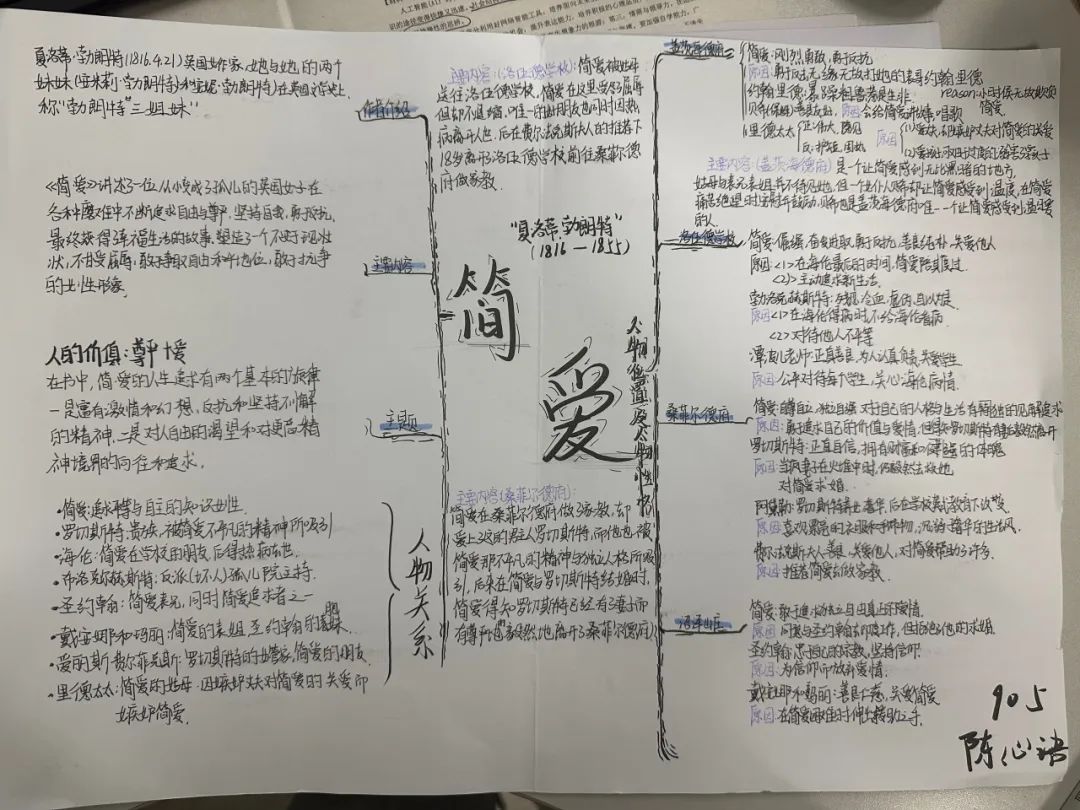 夏洛蒂·勃朗特(1816.4.21)英国女作家,她与她的两个
妹妹(艾米莉·勃朗特)和(安妮·勃朗特)在英国文学史上
称"勃朗特"三姐妹"
作者介绍
《简爱》讲述了一位从小变成了孤儿的英国女子在
各种磨难中不断追求自由与尊严,坚持自我,勇于反抗,
最终获得幸福生活的故事.塑造了一个不甘于现状
状,不甘受屈辱,敢于争取自由和平地位,敢于抗争
的女性形象
主要内容
人的价值:尊严+爱
在书中,简爱的人生追求有两个基本的旋律
一是富有激情和幻想,反抗和坚持不懈
的精神.二是对人自由的渴望和对更高精
神境界的向往和追求.
主题
·简爱:追求平等与自主的知识女性
·罗切斯特:贵族,被简爱不凡的精神所吸引
·海伦:简爱在学校的朋友后得热病去世.
·布洛克尔赫斯特:反派(坏人)孤儿院主持.
·圣约翰:简爱表兄,同时简爱追求者之一
·戴安娜和玛丽:简爱的表姐,圣约翰的妹妹
·爱丽斯·费尔菲克斯:罗切斯特的女管家,简爱的朋友
·里德太太:简爱的舅母.因嫉妒丈夫对简爱的关爱而
嫉妒简爱.
人物关系
简
爱
"夏洛蒂·勃朗特"
(1816—1855)
主要内容(洛伍德学校):简爱被舅母
送往洛伍德学校,简爱在这里受尽屈辱
但却不退缩.唯一的好朋友也同时因热
病离开人世.后在费尔法克斯夫人的推荐下
18岁离开洛伍德学校前往桑菲尔德
府做家教.
主要内容(桑菲尔德府):
简爱在桑菲尔德府做了家教,却
爱上这的君主人罗切斯特,而他也被
简爱那不凡的精神与独立人格所吸
引,后来在简爱与罗切斯特结婚时,
简爱得知罗切斯特已经有了妻子而
有尊严地毅然地离开了桑菲尔德府
人物位置及人物性格
盖茨海德府
简爱:刚烈勇敢,勇于反抗
原因:勇于反击无缘无故打她的表哥约翰·里德
约翰·里德:暴躁粗鲁,荒诞生非
reason:小时候无故欺负
简爱
贝茜(保姆):善良友好,原因:会给简爱讲故事,唱歌
里德太太
原因
主要内容(盖茨海德府) 是一个让简爱感到无比黑暗的地方,
舅母与表兄表姐并不待见她,但一个仆人贝茜却让简爱感受到温度,在简爱
痛苦绝望时安慰并鼓励,贝茜也是盖茨海德府唯一一个让简爱感受到温暖
的人
洛伍德学校
简爱:倔强,奋发进取,勇于反抗,善良纯朴,关爱他人
原因<1>在海伦最后的时间,简爱陪其度过.
<2>主动追求新生活.
勃洛克赫斯特:残忍,冷血,虚伪,自以为是
原因<1>在海伦得病时不给海伦看病
<2>对待他人不平等
潭波儿老师:正直善良,为人认真负责,关爱学生
原因:公平对待每个学生,关心海伦病情.
桑菲尔德府
简爱:自尊自立,独立自强,对于自己的人格与生活有独立的见解追求
原因:勇于追求自己的价值与爱情.但得知罗切斯特有妻毅然离开
罗切斯特:正直自信,拥有财富和健强的体魄
原因:当疯妻子在火堆中时,仍毅然去救她
对简爱求婚.
阿黛勒:罗切斯特养女,奢华,后在学校英式教育下改变
原因:喜欢漂亮的衣服和礼物,沉溺于奢华的生活风.
费尔法克斯夫人:善良,关爱他人,对简爱帮助了许多.
原因:推荐简爱去做家教.
简爱:敢于追求独立自由真正的爱情.
原因:同意与圣约翰去印度工作,但拒绝了他的求婚
圣约翰:忠于自己的宗教,坚持信仰.
原因:为信仰而放弃爱情.
戴安娜和玛丽:善良仁慈,关爱简爱
原因:在简爱困难时伸出援助之手.
905
陈心语